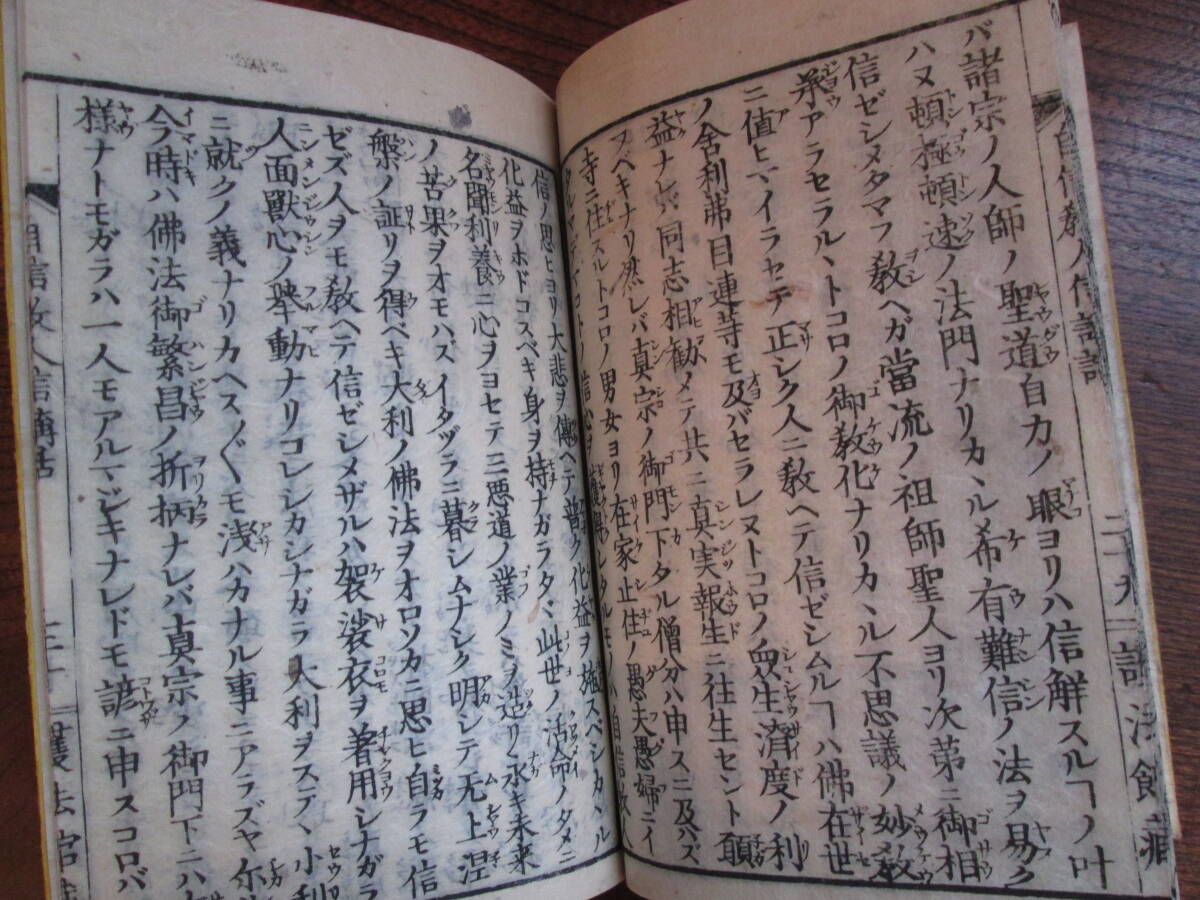 バ諸宗ノ人師ノ聖道自力ノ眼ヨリハ信解スルヿノ叶
ハヌ頓極頓速ノ法門ナリカヽル希有難信ノ法ヲ易ク
信ゼシメタマフ教ヘガ當流ノ祖師聖人ヨリ次第ニ御相
承アラセラルヽトコロノ御教化ナリカヽル不思議ノ妙教
ニ値ヒマイラセテ正シク人ニ教ヘテ信ゼシムルヿハ佛在世
ノ舍利弗目連等モ及バセラレヌトコロノ衆生濟度ノ利
益ナレバ同志相勸メテ共ニ真実報土ニ往生セント願
フベキナリ然レバ真宗ノ御門下タル僧分ハ申スニ及バズ
寺ニ住スルトコロノ男女ヨリ在家止住ノ愚夫愚婦ニイ
信ノ思ヒヨリ大悲ヲ傳ヘテ普ク化益ヲ施スベシカヽル
化益ヲホドコスベキ身ヲ持ナガラタヾ此世ノ活命ノタメニ
名聞利養ニ心ヲヨセテ三悪道ノ業ノミヲ造リ永キ未来
ノ苦果ヲオモハズイタヅラニ暮シムナシク明シテ无上涅
槃ノ証リヲ得ベキ大利ノ佛法ヲオロソカニ思ヒ自ラモ信
ゼズ人ヲモ教ヘテ信ゼシメザルハ袈裟衣ヲ著用シナガラ
人面獸心ノ舉動ナリコレシカシナガラ大利ヲステヽ小利
ニ就クノ義ナリカヘスヾモ浅ハカナル事ニアラズヤ尓
今時ハ佛法御繁昌ノ折柄ナレバ真宗ノ御門下ニハ
様ナトモガラハ一人モアルマジキナレドモ諺ニ申スコロバ